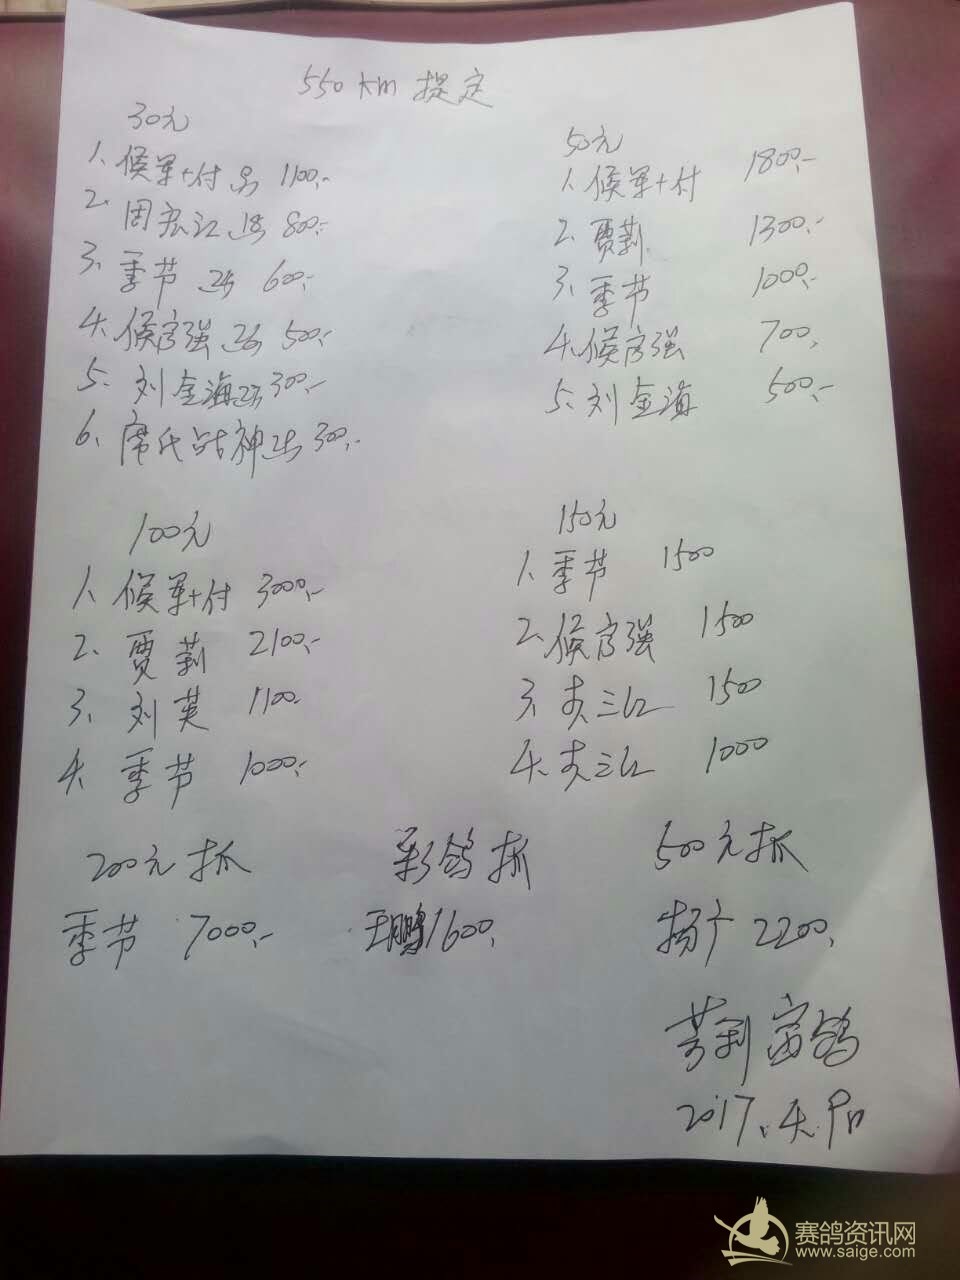 550km 提定
30元
1、候军+付 1100.-
2、周宏江 800.-
3、季节 600.-
4、候官强 500.-
5、刘金海 300.-
6、席氏战神 300.-
50元
1、候军+付 1800.-
2、贾莉 1300.-
3、季节 1000.-
4、候官强 700.
5、刘金海 500.-
100元
1、候军+付 3000.-
2、贾莉 2100.-
3、刘英 1100.-
4、季节 1000.-
150元
1、季节 1500
2、候官强 1500
3、三江 1500
4、三江 1000
200元抓
季节 7000.-
彩鸽抓
王鹏 1600.
500元抓
杨广 2200.
赛鸽
2017.4.9日
赛鸽资讯网
www.saige.com